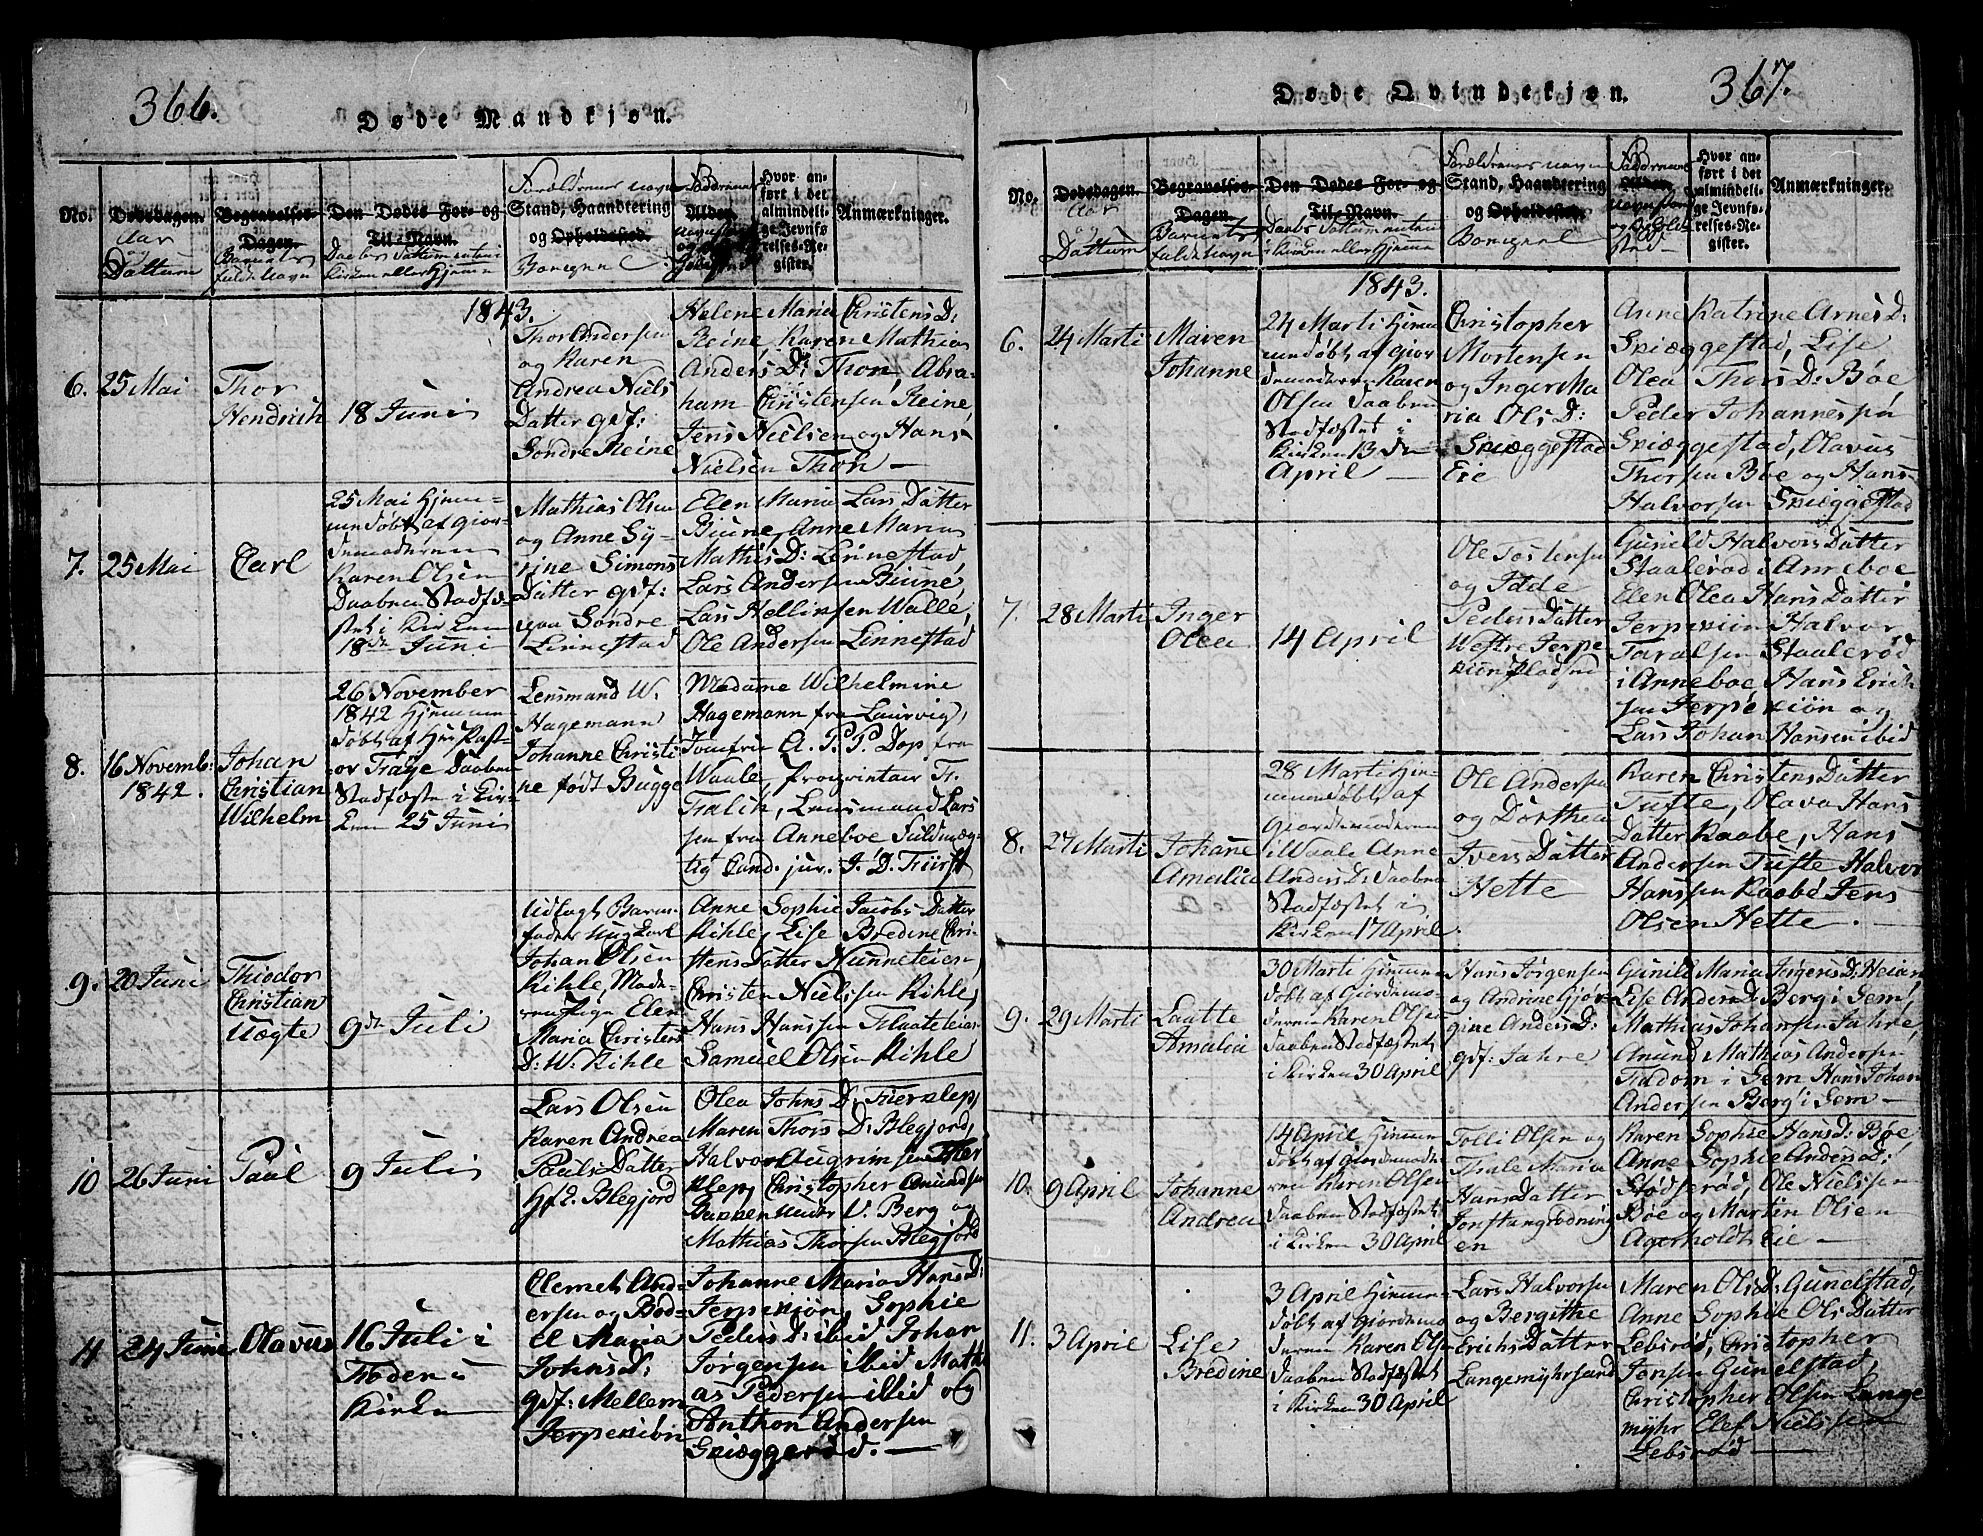 366.
Døde Mandkjøn.
No.
Dødsdagen.
Aar
og
Dattum
Begravelses-
Dagen.
Barnets
fulde Navn
Den Dødes For- og
Til-Navn.
Daabs Dattum enten i
Kirken eller Hjemme
Forældrenes Navn
Stand, Haandtering
og Opholdssted.
Boepæl
Faddernes
Alder.
Hvor an-
ført i det
almindeli-
ge Jevnfø-
relses-Re-
gister.
Anmærkninger.
1843.
6.
25 Mai
Thor
Hendrich
18 Juni
Thor Andersen
og Karen
Andrea Niels
Datter gdf:
Søndre Reine
Helene Maria Christens D:
Reine, Karen Mathias
Anders D: Thon, Abra-
ham Christensen Reine,
Jens Nielsen og Hans
Nielsen Thon —
7.
25 Mai
Carl
25 Mai Hjem-
mendøbt af Gjor-
demoderen
Karen Olsen
Daaben Stadfæ-
stet i Kirken
18de Juni
Mathias Olsen
og Anne Sy-
rine Simons
Datter gdf:
paa Søndre
Linnestad
Elen Maria Lars Datter
Biune, Anne Maria
Mathis D: Linnestad,
Lars Andersen Biune,
Lars Hellissen Walle,
Ole Andersen Linnestad
8.
16 Novemb:
1842.
Johan
Christian
Wilhelm
26 November
1842 Hjemme
døbt af Hr Past-
or Fraÿe Daaben
Stadfæstet i Kir-
ken 25 Juni
Lensmand W.
Hagemann
Johanne Christi
ne født Bugge
Madame Wilhelmine
Hagemann fra Laurvig,
Jomfru A. P. P. Dop fra
Waale, Fr.
Falick, Lensmand Lars
sen fra Anneboe Fuldmæg-
tig Cand. jur. J. D. Fürst
9.
20 Juni
Thiodor
Christian
Uægte
9de Juli
Udlagt Barne-
fader Ungkarl
Johan Olsen
Kihle, Mode-
ren Pige Elen
Maria Christens
D: W: Kihle
Anne Sophie Jacobs Datter
Kihle, Lise Bredine Chri-
stens Datter Nunneteien,
Christen Nielsen Kihle,
Hans Hanssen Flaateteien
Samuel Olsen Kihle
10
26 Juni
Paul
9 Juli
Lars Olsen
Karen Andrea
Pauls Datter
Gf: Ø. Blegjord
Olea Johns D: Fierklep,
Maren Thors D: Blegjord,
Halvor Augrimsen Fier
klep, Christopher Amundsen
V. Berg og
Mathias Thorsen Blegjord
11
24 Juni
Olavus
16 Juli i
Foden
Kirken
Clemet And-
ersen og Bod-
el Maria
Johns D:
gdf: Mellem
Jerpekiøn
Johanne Maria Hans D:
Jerpekiøn, Sophie
Peders D: ibid Johan
Jørgensen ibid Mathi
as Pedersen ibid og
Anthon Andersen
Skiæggerød. —
Døde Qvindekjøn.
367.
No.
Dødsdagen.
Aar
og
Dattum
Begravelses-
Dagen.
Barnets
fulde Navn
Den Dødes For- og
Til-Navn.
Daabs Dattum enten
i Kirken eller Hjemme
Forældrenes Navn
Stand, Haandtering
og Opholdssted.
Boepæl
Faddernes
Alder.
Navn, Stand
og Opholds-
sted
Hvor an-
ført i det
almindeli-
ge Jevnfø-
relses-Re-
gister.
Anmærkninger.
1843.
6.
24 Marti
Maren
Johanne
24 Marti Hjem
mendøbt af Gjor
demoderen Karen
Olsen Daaben
Stadfæstet i
Kirken 13 den
April —
Christopher
Mortensen
og Inger Ma
ria Ols D:
Skiæggestad
Eie
Anne Katrine Arnes D:
Skiæggestad, Lise
Olea Thors D: Bøe
Peder Johannesen
Skiæggestad, Olavus
Thorsen Bøe og Hans
Halvorsen Skiæggestad
7.
28 Marti
Inger
Olea
14 April
Ole Tostensen
og Idde
Peders Datter
Westre Jerpe
kiøn Pladsen
Gunild Halvors Datter
Staalerød i Anneboe
Elen Olea Hans Datter
Jerpekiøn Halvor
Taralsen Staalerød
i Anneboe Hans Erich
sen Jerpekiøn og
Lars Johan Hansen ibid
8.
27 Marti
Johanne
Amalia
28 Marti Hjem-
mendøbt af
Gjordemoderen
i Waale Anne
Anders D: Daaben
Stadfæstet i
Kirken 17 April
Ole Andersen
og Dorthea
Ivers Datter
Hette
Karen Christens Datter
Tufte, Olava Hans
Datter Raabe, Hans
Andersen Tufte Halvor
Hanssen Raabe Jens
Olsen Hette.
9.
29 Marti
Laatte
Amalia
30 Marti Hjemmen
døbt af Gjordemo-
deren Karen Olsen
Daaben Stadfæstet
i Kirken 30 April
Hans Jørgensen
og Andrine Gjør-
gine Anders D:
gdf: Jahre
Gunild Maria Jørgens D: Heian
Lise Anders D: Berg i Sem,
Mathias Johansen Jahre,
Amund Mathias Andersen
Fuldom i Sem Hans Johan
Andersen Berg i Sem —
10.
9 April
Johanne
Andrea
14 April Hjemmen
døbt af Gjordemode-
ren Karen Olsen
Daaben Stadfæstet
i Kirken 30 April
Tolli Olsen og
Thale Maria
Hans Datter
Jonstangrødning
en
Karen Sophie Hans D: Bøe
Anne Sophie Anders D:
Stødserød, Ole Nielsen
Bøe og Martin Olsen
Agerholdt Eie —
11.
3 April
Lise
Bredine
3 April Hjemmen-
døbt af Gjordemo
deren Karen Olsen
Daaben Stadfæstet
i Kirken 30 April
Lars Halvorsen
og Bergithe
Erichs Datter
Langemyhrsand
Maren Ols D: Gunelstad,
Anne Sophie Ols Datter
Lebsrød, Christopher
Jonsen Gunelstad,
Christopher Olsen Lange
myhr Elef Nielsen
Lebsrød —